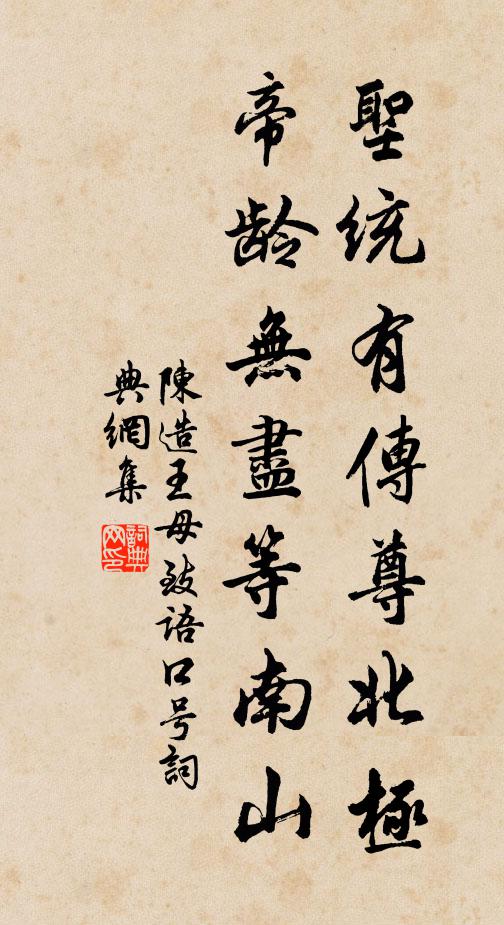 聖統有傳尊北極
帝龄無盡等南山
陳造王母致语口号詞
典網集
詞典网印